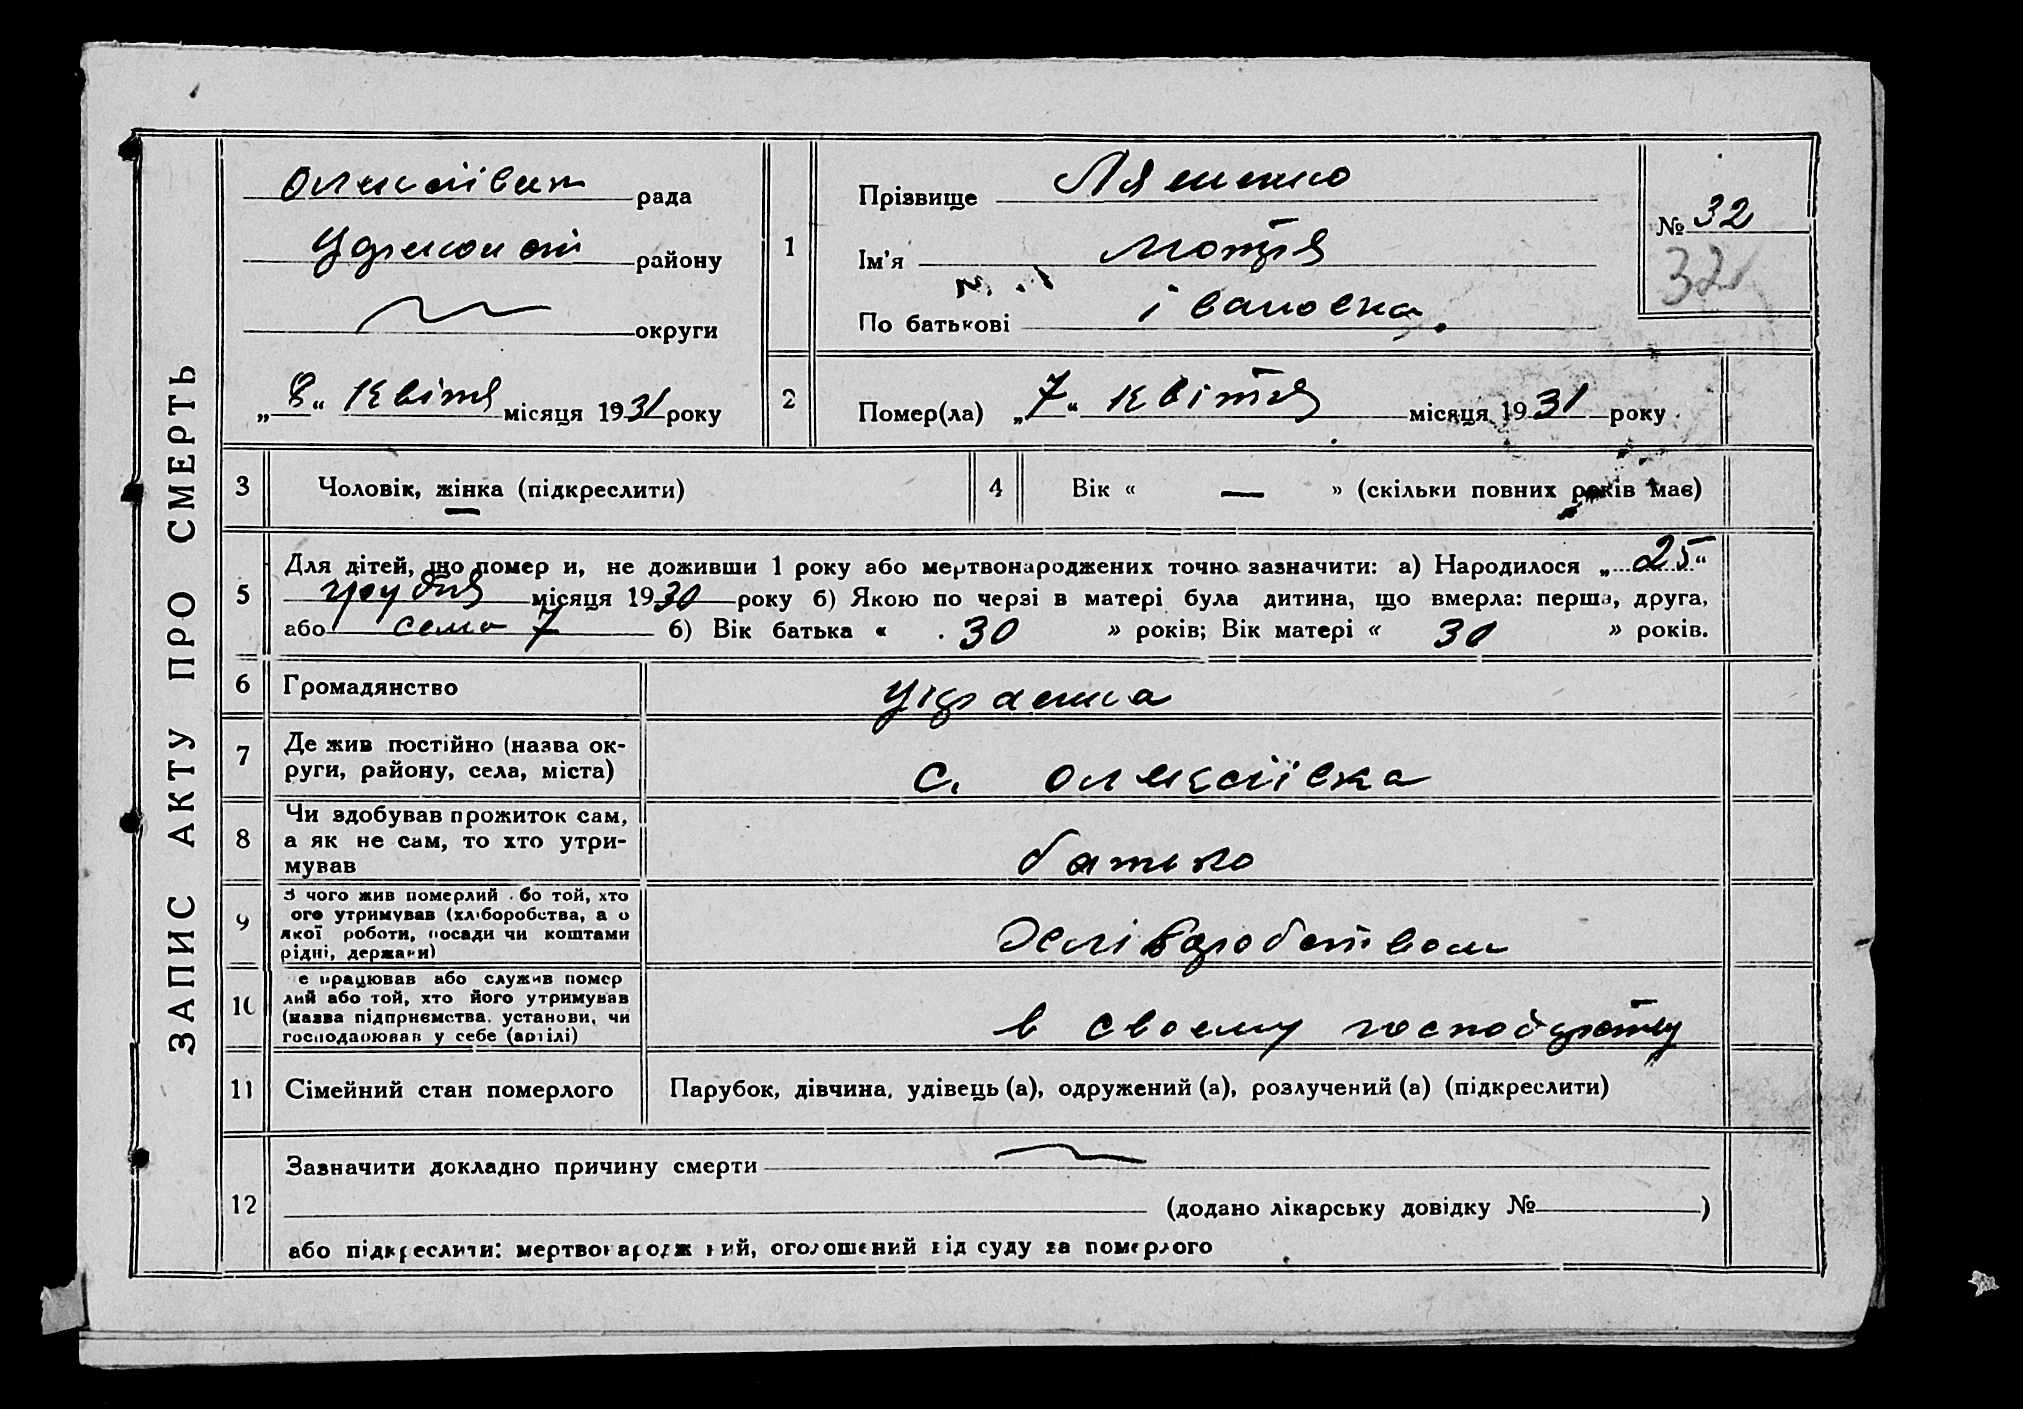 ЗАПИС АКТУ ПРО СМЕРТЬ
рада
району
округи
„8“ Квітня місяця 1931 року
1
Прізвище Ляшенко
Ім'я Мотря
По батькові івановна.
№ 32
32
2
Помер(ла) „7“ Квітня місяця 1931 року
3 Чоловік, жінка (підкреслити)
4 Вік « — » (скільки повних років має)
5
Для дітей, що помер и, не доживши 1 року або мертвонароджених точно зазначити: а) Народилося „25“
грудня місяця 1930 року б) Якою по черзі в матері була дитина, що вмерла: перша, друга,
або семо 7 б) Вік батька « 30 » років; Вік матері « 30 » років.
6 Громадянство украенка
7 Де жив постійно (назва округи, району, села, міста) с. олексіївка
8 Чи здобував прожиток сам,
а як не сам, то хто утри-
мував батько
9 З чого жив померлий бо той, хто
ого утримував (хліборобства, а о
якої роботи, посади чи коштами
рідні, держави) Хліборобством
10 е працював або служив помер
лий або той, хто його утримував
(назва підприємства, установи, чи
господарював у себе (артілі) в своему
11 Сімейний стан померлого Парубок, дівчина, удівець (а), одружений (а), розлучений (а) (підкреслити)
12
Зазначити докладно причину смерти
(додано лікарську довідку № )
або підкреслити: мертвонароджений, оголошений від суду за померлого